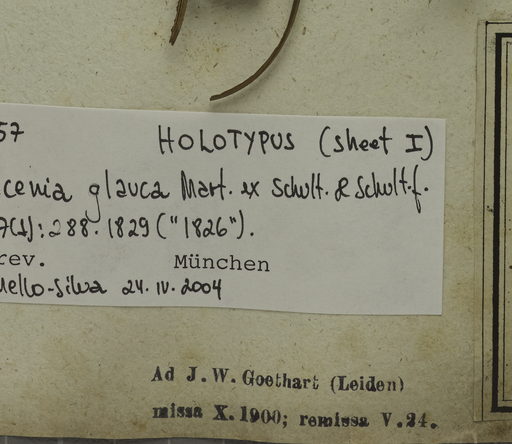 57 HOLOTYPUS (sheet I)
cenia glauca Mart. ex Schult. & Schult.f.
7(1): 288. 1829 ("1826").
rev. München
Mello-Silva 24.IV.2004
Ad J. W. Goethart (Leiden)
missa X. 1900; remissa V. 24.